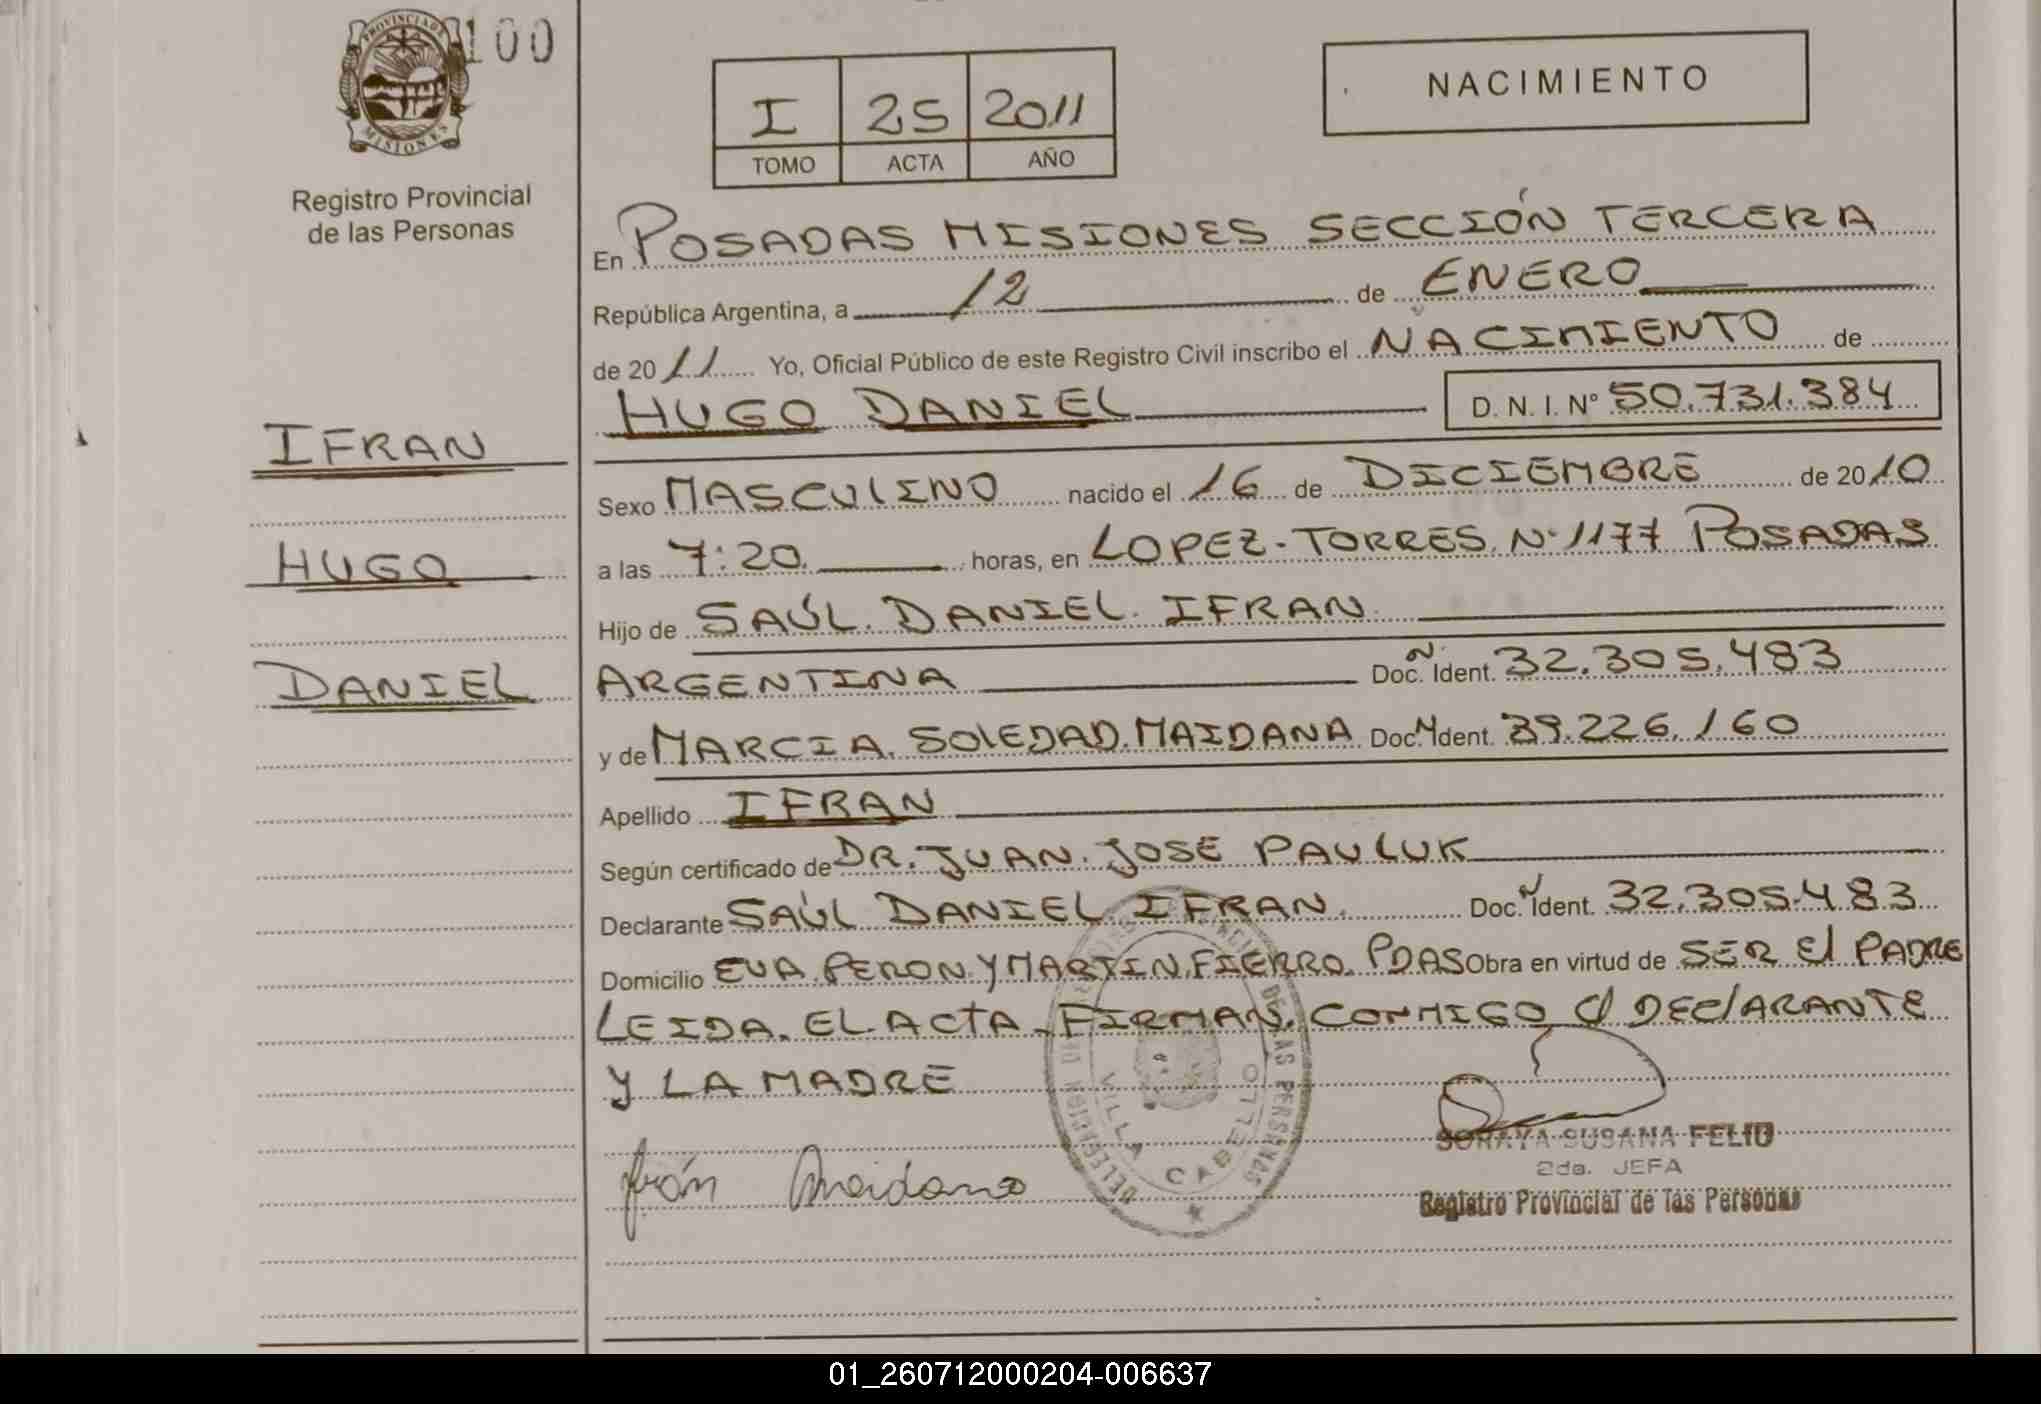 PROVINCIA DE MISIONES
100
Registro Provincial
de las Personas
I 25 2011
TOMO ACTA AÑO
NACIMIENTO
En POSADAS MISIONES SECCIÓN TERCERA
República Argentina, a 12 de ENERO
de 2011 Yo, Oficial Público de este Registro Civil inscribo el NACIMIENTO de
HUGO DANIEL D. N. I. Nº 50.731.384
IFRAN
HUGO
DANIEL
Sexo MASCULINO nacido el 16 de DICIEMBRE de 2010
a las 7:20 horas, en LOPEZ TORRES Nº 1177 POSADAS
Hijo de SAÚL DANIEL IFRAN
ARGENTINA Doc. N. Ident. 32.305.483
y de MARCIA SOLEDAD MAIDANA Doc. N Ident. 39.226.160
Apellido IFRAN
Según certificado de DR. JUAN JOSE PAULUK
Declarante SAÚL DANIEL IFRAN Doc. N Ident. 32.305.483
Domicilio EVA PERON Y MARTIN FIERRO PDAS Obra en virtud de SER El PADRE
LEIDA EL ACTA FIRMAN CONMIGO El DEClARANTE
Y LA MADRE
DELEGACION REGISTRO PROVINCIAL DE LAS PERSONAS
VILLA CABELLO
Ifrán Maidana
SORAYA SUSANA FELIU
2da. JEFA
Registro Provincial de las Personas
01_260712000204-006637